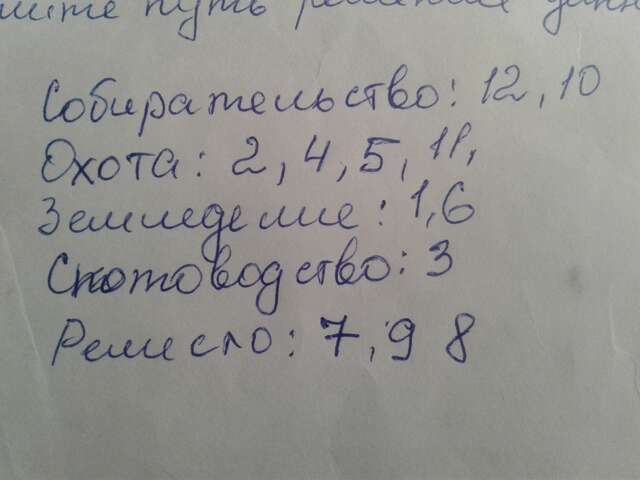 путь решения
Собирательство: 12, 10
Охота: 2, 4, 5, 11,
Земледелие: 1, 6
Скотоводство: 3
Ремесло: 7, 9 8